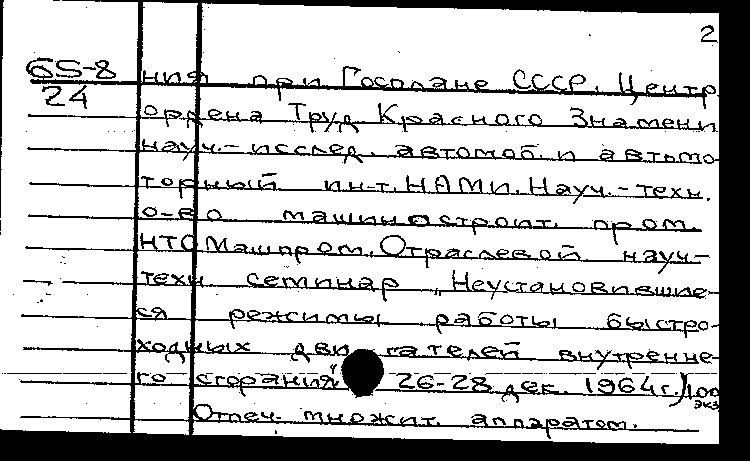 2
65-8
24
ния при Госплане СССР. Центр.
ордена Труд. Красного Знамени
науч.-исслед. автомоб. и автомо-
торный ин-т. НАМИ. Науч.-техн.
о-во машиностроит. пром.
НТО Машпром. Отраслевой науч-
техн семинар „Неустановившие-
ся режимы работы быстро-
ходных двигателей внутренне-
го сгорания" 26-28 дек. 1964г.)100
экз
Отпеч. множит. аппаратом.